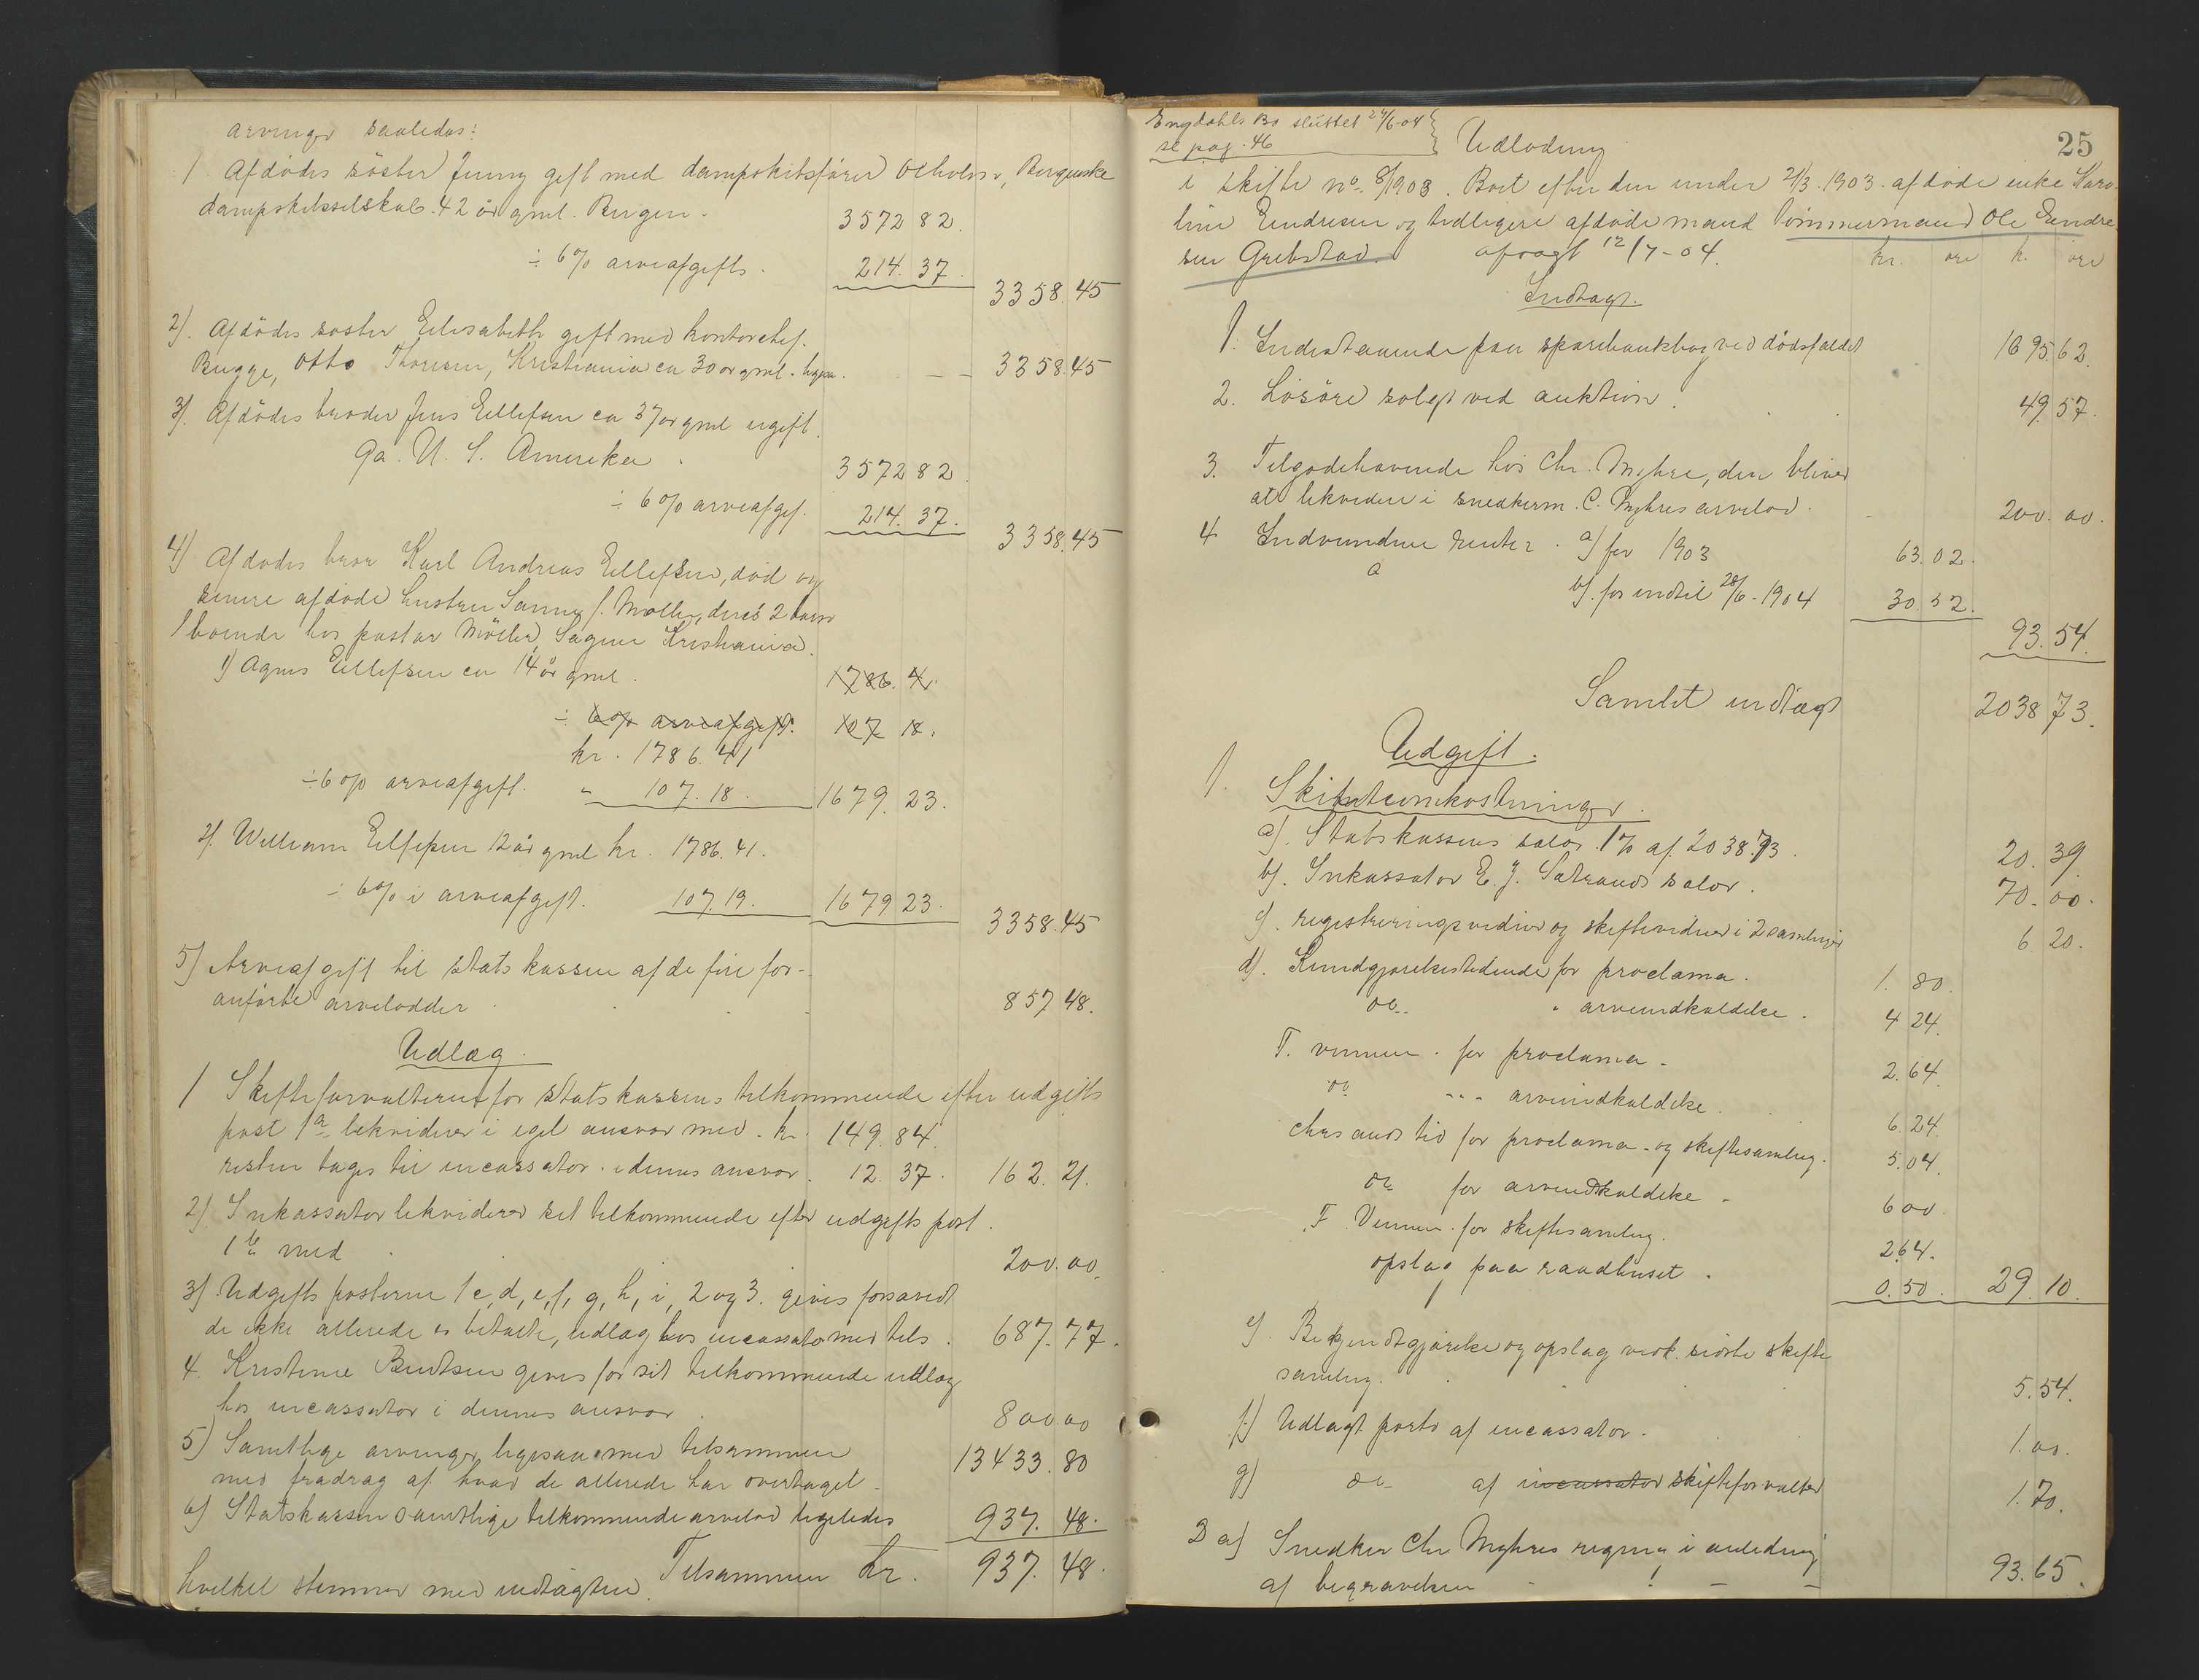 arvinger saaledes:
1 Afdødes søster Jenny gift med dampskibsfører Olholm, Bergenske
dampskibsselskab. 42 år gml. Bergen. 3572 82.
÷ 6% arveafgift. 214. 37. 3358. 45
2). Afdødes søster Elisabeth gift med kontorchef.
Bugge, Otto Thoresen, Kristiania ca 30 år gml. - - 3358. 45
3). Afdødes broder Jens Ellefsen ca 37 år gml ugift.
Ga. U. S. Amerika. 3572 82.
÷ 6% arveafgif. 214. 37. 3358. 45
4) Afdødes bror Karl Andreas Ellefsen, død og
senere afdøde hustru Sanny f. Møller, deres 2 børn
boende hos pastor Møller, Sagene Kristiania.
1) Agnes Ellefsen ca 14 år gml. 1786. 4.
÷ 6% arveafgift. 107 18.
kr. 1786. 41
÷ 6% arveafgift. " 107. 18. 1679. 23.
2). William Ellefsen 12 år gml kr. 1786. 41.
÷ 6% i arveafgift. 107. 19. 1679 23. 3358. 45
5) Arveafgift til statskassen af de fire for-
anførte arvelodder . . . 857 48.
Udlæg.
1 Skifteforvalteren for statskassens tilkommende efter udgifts
post 1a likviderer i eget ansvar med. kr. 149. 84.
resten tages til incassator i dennes ansvar. 12. 37. 162. 21.
2) Inkassator likviderer sit tilkommende efter udgifts post.
1b med . 200. 00.
3) Udgifts posterne 1 c, d, e, f, g, h, i, 2 og 3. gives forsavidt
de ikke allerede er betalte, udlæg hos incassator med tils. 687. 77.
4. Kristine Bentsen gives for sit tilkommende udlæg
hos incassator i dennes ansvar. 800 00
5) Samtlige arvinger, ligesaa med tilsammen 13433. 80
med fradrag af hvad de allerede har overtaget.
6) Statskassen samtlige tilkommende arvelod ligeledes 937. 48.
Tilsammen kr. 937. 48.
hvilket stemmer med indtægten.
Engdahls Bo sluttet 24/6-04
se pag. 46
25
Udlodning
i skifte no. 8/1903. Boet efter den under 2/3. 1903. afdøde enke Karo-
line Eendresen og tidligere afdøde mand tømmermand Ole Eendre-
sen Grebstad. afsagt 12/7-04. kr. øre kr. øre
Indtægt.
1. Indestaaende paa sparebankbog ved dødsfaldet 1695. 62.
2. Løsøre solgt ved auktion. 49. 57.
3. Tilgodehavende hos Chr. Myhre, den bliver
at likvidere i snedkerm. C. Myhres arvelod. 200. 00.
4 Indvundne renter. a) for 1903 63. 02.
b). for indtil 28/6-1904 30. 52.
93. 54.
Samlet indtægt 2038 73.
Udgift.
1. Skifteomkostninger.
a). Statskassens salær. 1% af. 2038. 73. 20. 39.
b). Inkassator E. J. Sætrands salær. 70. 00.
c). registreringsvidner og skiftevidner i 2 samlinger 6. 20.
d). Kundgjørelsestidende for proclama. 1. 80.
do. " arveindkaldelse. 4 24.
T. vennen. for proclama. 2. 64.
do - - - arveindkaldelse. 6. 24.
Chrsands tid for proclama. og skiftesamling. 5. 04.
do for arveindkaldelse - 6 00
F. Vennen. for skiftesamling. 2. 64.
opslag paa raadhuset. 0. 50. 29. 10.
e). Bekjendtgjørelse og opslag vedk. sidste skifte
samling. 5. 54.
f.) Udlagt porto af incassator. 1. 00.
g) do - af incassator skifteforvalter 1. 70.
2 a) Snedker Chr Myhres regning i anledning
af begravelsen - - - 93. 65.